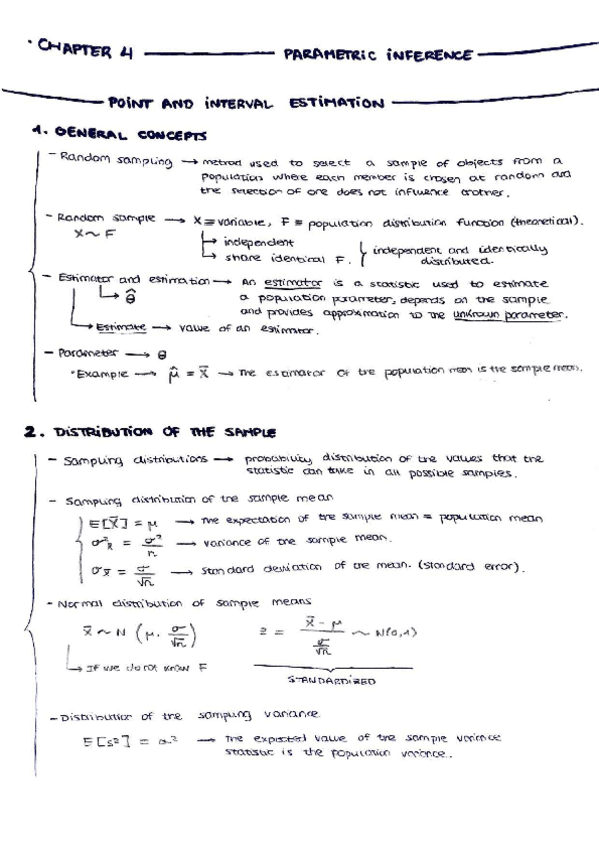 · CHAPTER 4 — PARAMETRIC INFERENCE —
— POINT AND INTERVAL ESTIMATION —
1. GENERAL CONCEPTS
- Random sampling → method used to select a sample of objects from a
population where each member is chosen at random and
the selection of one does not influence another.
- Random sample → X ≡ variable, F ≡ population distribution function (theoretical).
X ~ F
↳ independent
↳ share identical F. } independent and identically
distributed.
- Estimator and estimation → An estimator is a statistic used to estimate
↳ θ̂ a population parameter, depends on the sample
and provides approximation to the unknown parameter.
↳ Estimate → value of an estimator.
- Parameter → θ
· Example → μ̂ = X̄ → The estimator of the population mean is the sample mean.
2. DISTRIBUTION OF THE SAMPLE
- Sampling distributions → probability distribution of the values that the
statistic can take in all possible samples.
- Sampling distribution of the sample mean
E[X̄] = μ → The expectation of the sample mean = population mean
σ²x̄ = σ²/n → variance of the sample mean.
σx̄ = σ/√n → standard deviation of the mean. (standard error).
- Normal distribution of sample means
X̄ ~ N (μ, σ/√n) z = (X̄ - μ)/(σ/√n) ~ N(0,1)
↳ If we do not know F
STANDARDIZED
- Distribution of the sampling variance
E[s²] = σ² → The expected value of the sample variance
statistic is the population variance.